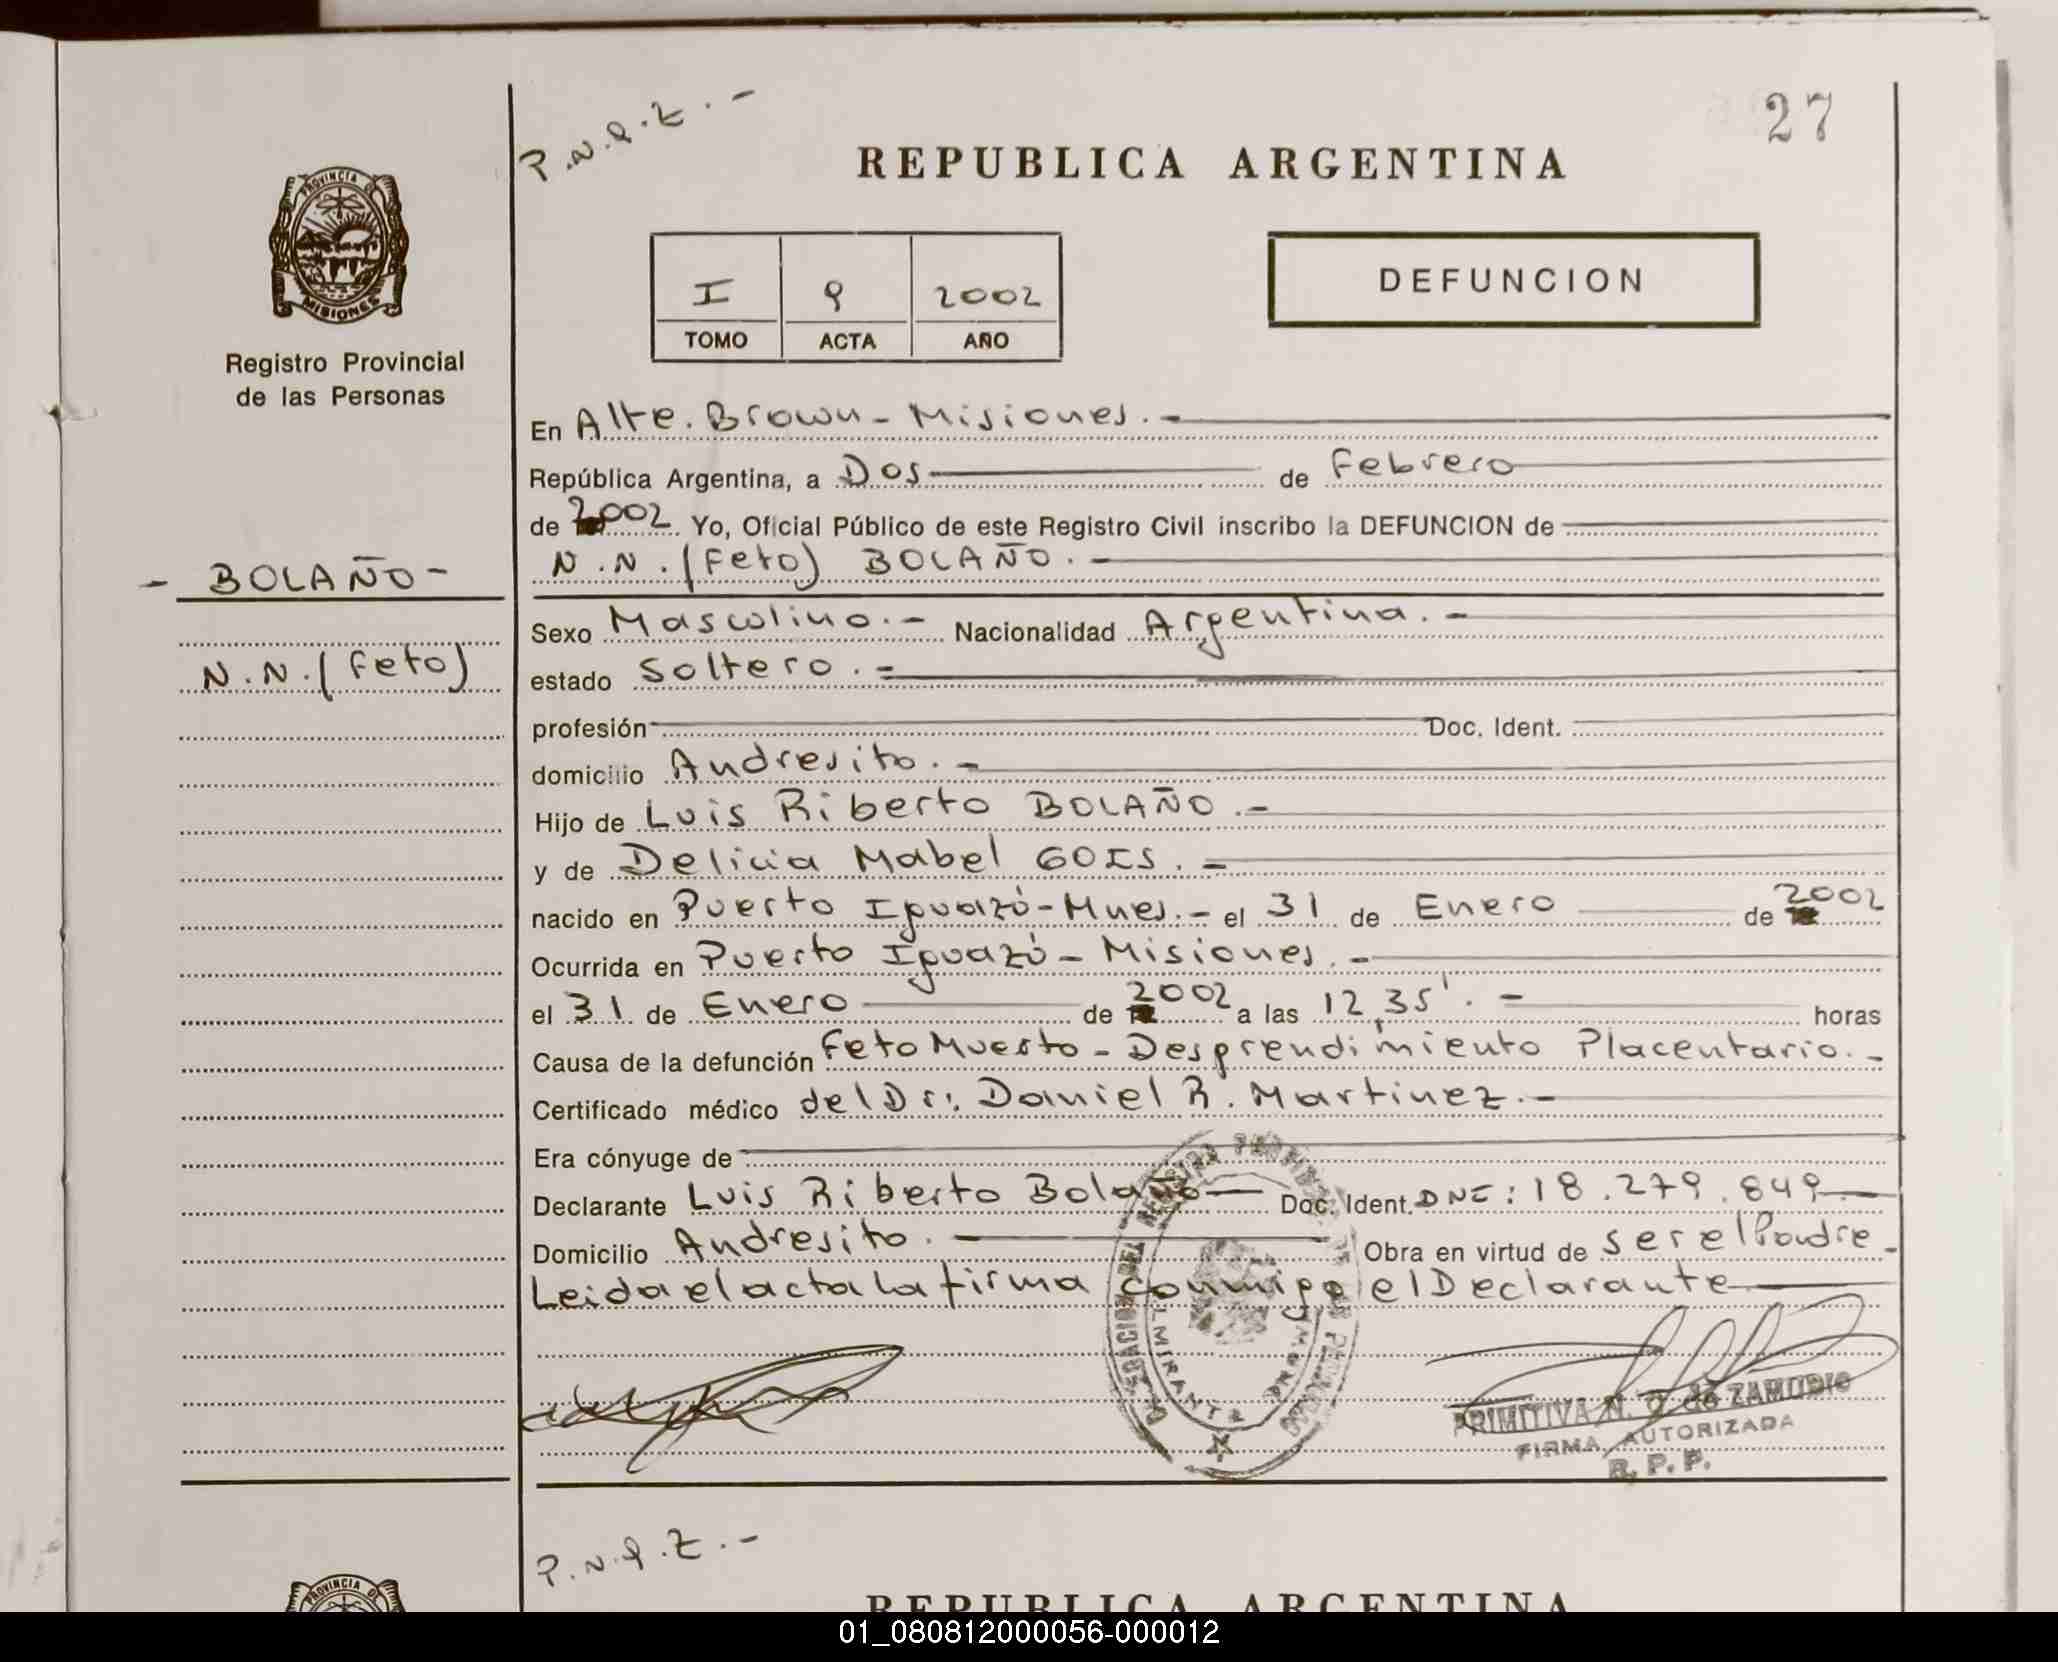 27
P.N.Q.Z.-
REPUBLICA ARGENTINA
PROVINCIA DE
MISIONES
Registro Provincial
de las Personas
I 9 2002
TOMO ACTA AÑO
DEFUNCION
En Alte. Brown - Misiones.-
República Argentina, a Dos de Febrero
de 2002 Yo, Oficial Público de este Registro Civil inscribo la DEFUNCION de
- BOLAÑO -
N.N. (Feto) BOLAÑO.-
Sexo Masculino.- Nacionalidad Argentina.-
N.N. (Feto)
estado Soltero.-
profesión Doc. Ident.
domicilio Andresito.-
Hijo de Luis Riberto BOLAÑO.-
y de Delicia Mabel GOIS.-
nacido en Puerto Iguazú - Mnes.- el 31 de Enero de 2002
Ocurrida en Puerto Iguazú - Misiones.-
el 31 de Enero de 2002 a las 12,35'.- horas
Causa de la defunción Feto Muerto - Desprendimiento Placentario.-
Certificado médico del Dr: Daniel R. Martinez.-
Era cónyuge de
Declarante Luis Riberto Bolaño Doc. Ident. DNI: 18.279.849
Domicilio Andresito. Obra en virtud de ser el Padre.
Leida el acta la firma conmigo el Declarante
PRIMITIVA N. Q. de ZAMUDIO
FIRMA AUTORIZADA
R. P. P.
P.N.Q.Z.-
PROVINCIA DE
REPUBLICA ARGENTINA
01_080812000056-000012